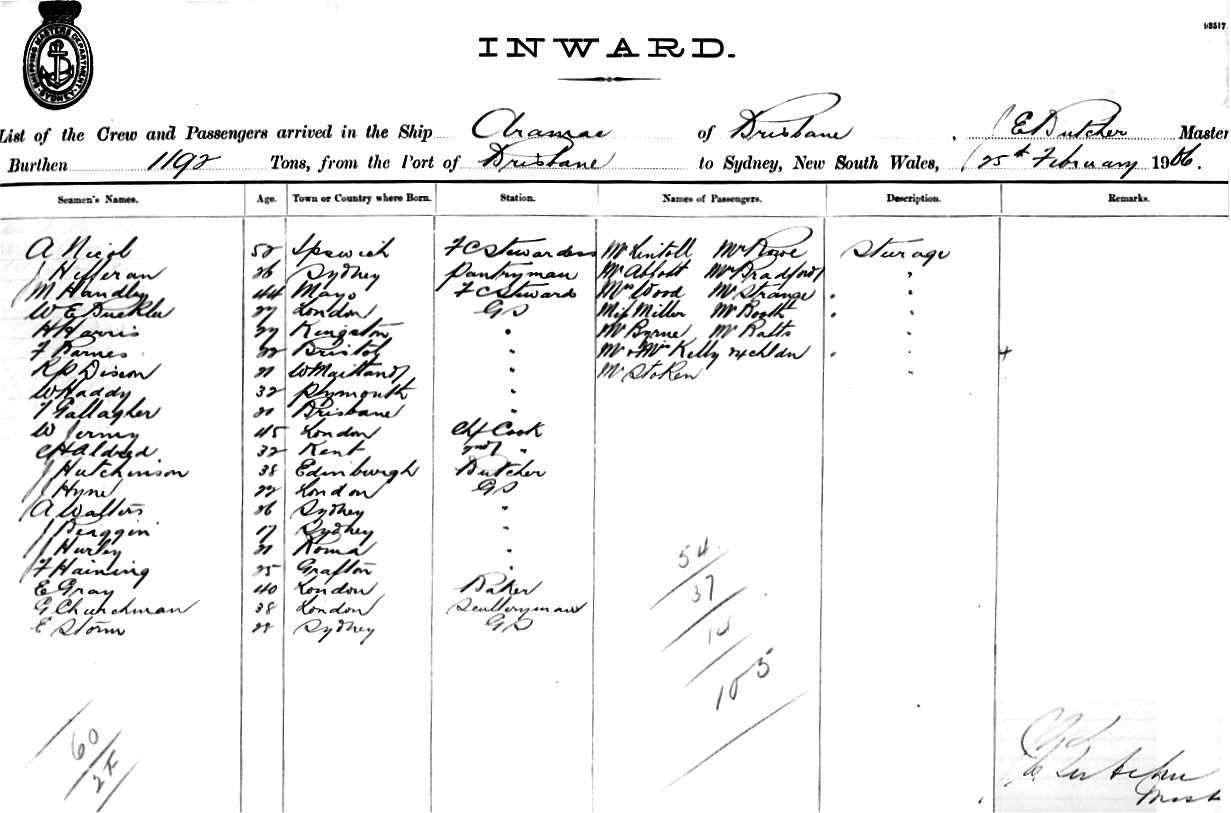 SHIPPING MASTERS DEPARTMENT SYDNEY
93517
INWARD.
List of the Crew and Passengers arrived in the Ship Aramac of Brisbane, E Butcher Master
Burthen 1192 Tons, from the Port of Brisbane to Sydney, New South Wales, 25th February 1906.
Seamen's Names. Age. Town or Country where Born. Station. Names of Passengers. Description. Remarks.
A Nicol 52 Ipswich F C Stewardess Mr Lintott Mr Rowe Steerage
J 26 Sydney Pantryman Mr Abbott Mr Bradford "
M Handley 44 Mayo F C Steward Mrs Wood Mr Strange "
W E Buckler 27 London GS Miss Miller Mr Booth "
H Harris 27 Kingston " Mr Byrne Mr Batts "
F Barnes 22 Bristol " Mr & Mrs Kelly 2 chldn " +
R P Dixon 21 W Maitland " Mr Stoken "
W Haddy 32 Plymouth "
T Gallagher 21 Brisbane "
W 45 London Chf Cook
C H Aldred 32 Kent 2nd "
J Hutchinson 38 Edinburgh Butcher
J Hyne 22 London GS
A Walters 26 Sydney "
J 17 Sydney "
J Hurley 21 Roma "
F Haining 25 Grafton "
E Gray 40 London Baker
G Churchman 38 London Sculleryman
E Storm 28 Sydney GS
54
37
14
105
60
E Butcher
Mast